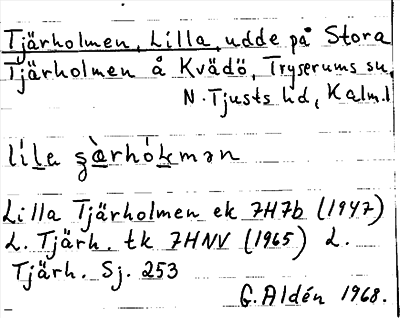 Tjärholmen, Lilla, udde på Stora
Tjärholmen å Kvädö, Tryserums sn,
N. Tjusts hd, Kalm.l
líḷa ʂàrhóḷmən
Lilla Tjärholmen ek 7H7b (1947)
L. Tjärh. tk 7HNV (1965) L.
Tjärh. Sj. 253
G. Aldén 1968.